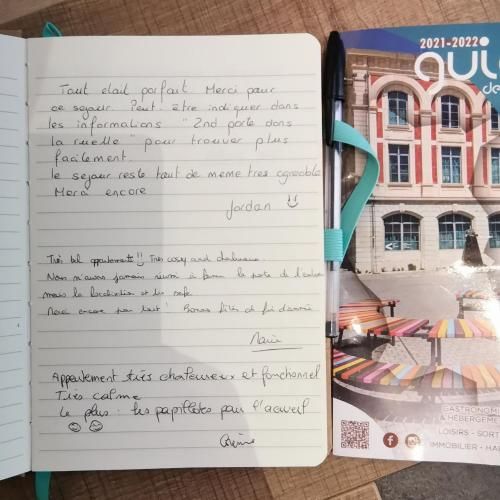 Tout etait parfait. Merci pour
ce sejour. Peut être indiquer dans
les informations "2nd porte dans
la ruelle" pour trouver plus
facilement.
le sejour reste tout de meme tres agreable
Merci encore
Jordan
Très bel appartement!! Très cosy and chaleureux.
Nous n'avons jamais réussi à fermer la porte de l'entrée
mais la localisation est très safe.
Merci encore pour tout! Bonnes fêtes de fin d'année
Marie
Appartement très chaleureux et fonctionnel
Très calme
Le plus : les papillotes pour l'accueil
2021-2022
GASTRONOMI
& HÉBERGEME
LOISIRS - SORT
IMMOBILIER - HA